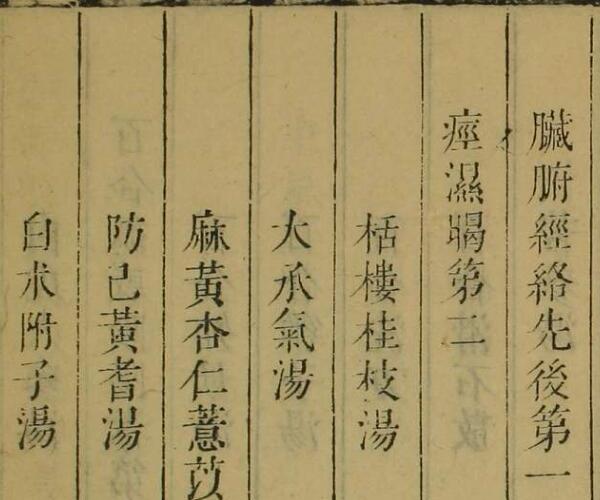 臟腑經絡先後第一
痙濕暍第二
栝樓桂枝湯
大承氣湯
麻黃杏仁薏苡
防己黃耆湯
白朮附子湯